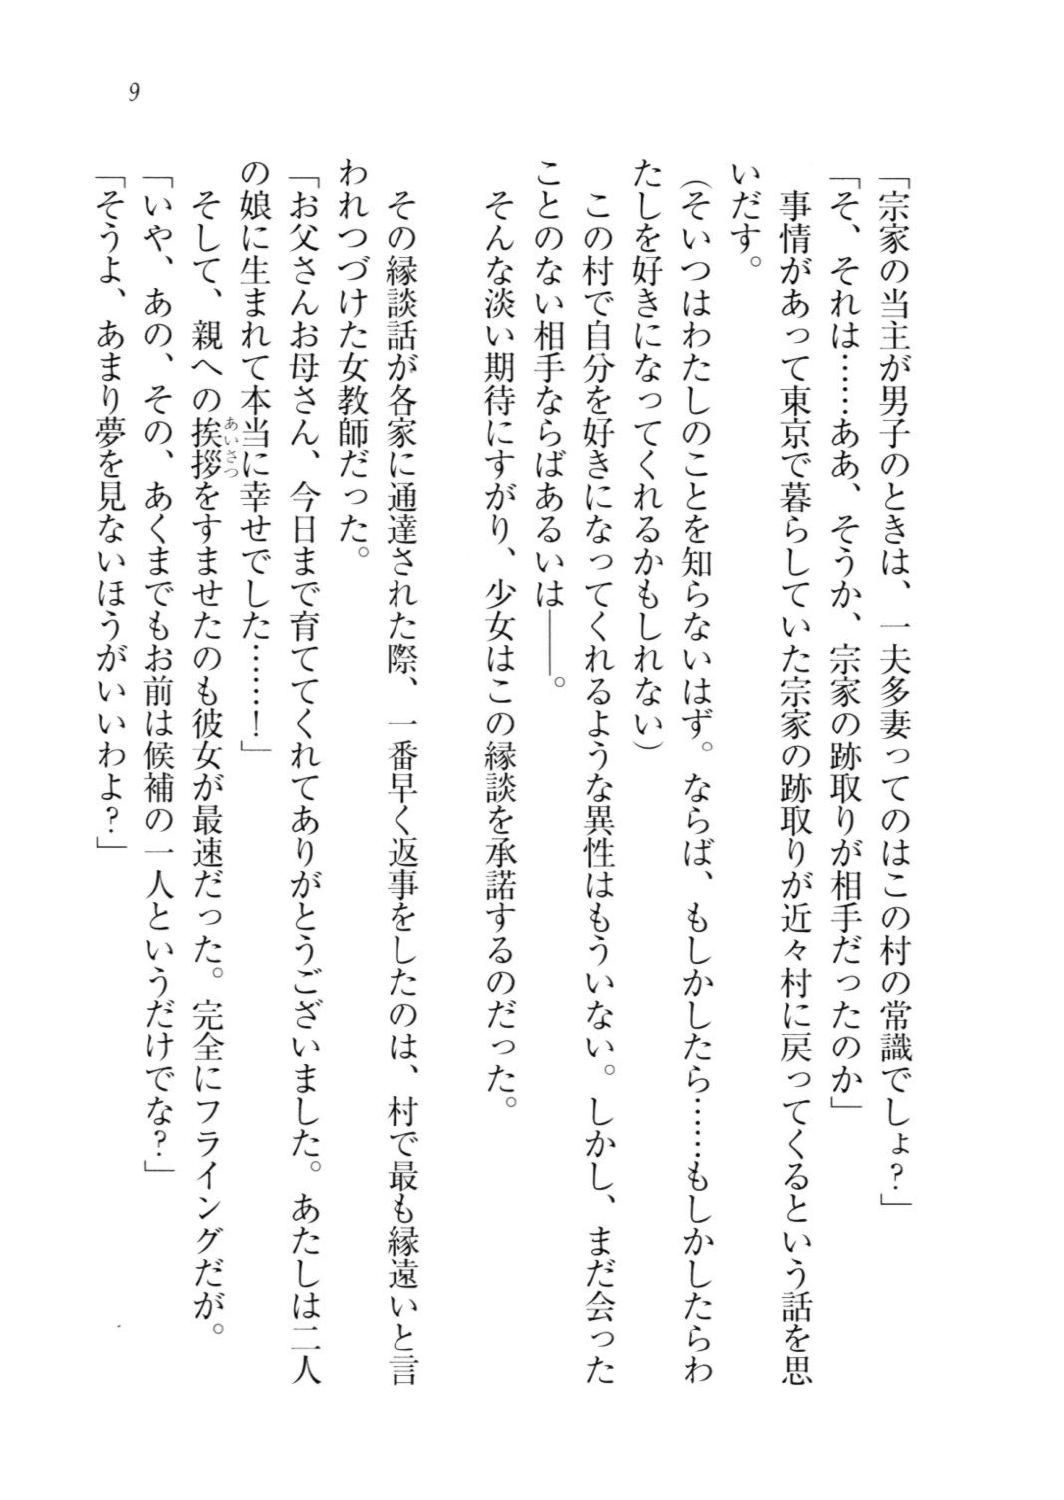 9
「宗家の当主が男子のときは、一夫多妻ってのはこの村の常識でしょ?」
「そ、それは……ああ、そうか、宗家の跡取りが相手だったのか」
事情があって東京で暮らしていた宗家の跡取りが近々村に戻ってくるという話を思
いだす。
(そいつはわたしのことを知らないはず。ならば、もしかしたら……もしかしたらわ
たしを好きになってくれるかもしれない)
この村で自分を好きになってくれるような異性はもういない。しかし、まだ会った
ことのない相手ならばあるいは――。
そんな淡い期待にすがり、少女はこの縁談を承諾するのだった。
その縁談話が各家に通達された際、一番早く返事をしたのは、村で最も縁遠いと言
われつづけた女教師だった。
「お父さんお母さん、今日まで育ててくれてありがとうございました。あたしは二人
の娘に生まれて本当に幸せでした……!」
そして、親への挨拶あいさつをすませたのも彼女が最速だった。完全にフライングだが。
「いや、あの、その、あくまでもお前は候補の一人というだけでな?」
「そうよ、あまり夢を見ないほうがいいわよ?」